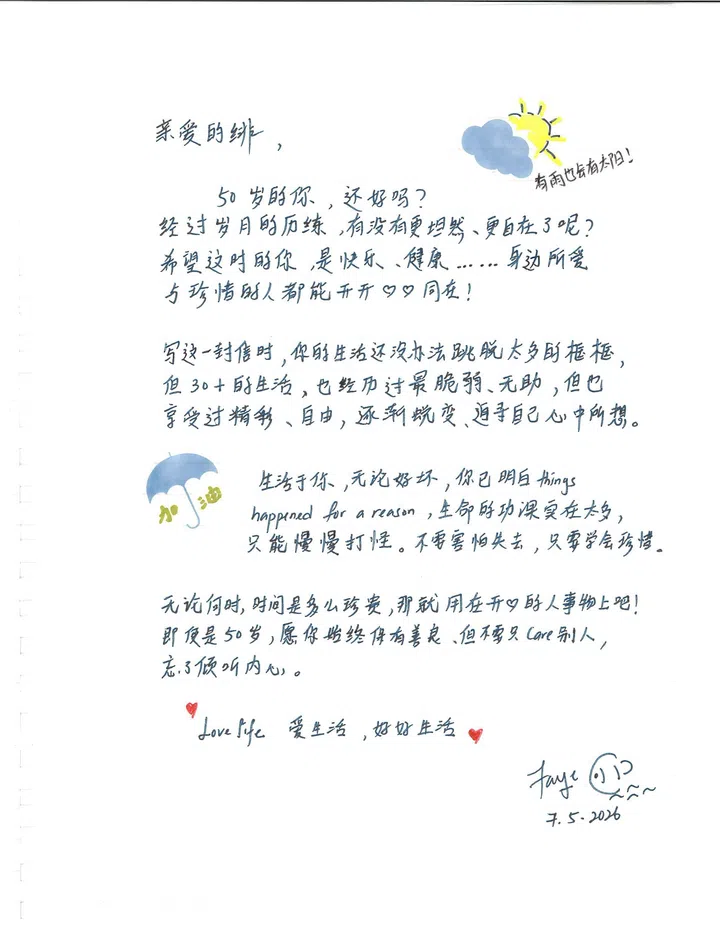 亲爱的绯,
有雨也会有太阳!
50岁的你,还好吗?
经过岁月的历练,有没有更坦然、更自在了呢?
希望这时的你,是快乐、健康......身边所爱
与珍惜的人都能开开♡♡同在!
写这一封信时,你的生活还没办法跳脱太多的框框,
但30+的生活,也经历过最脆弱、无助,但也
享受过精彩、自由,逐渐蜕变、追寻自己心中所想。
加油
生活于你,无论好坏,你已明白things
happened for a reason,生命的功课实在太多,
只能慢慢打怪。不要害怕失去,只要学会珍惜。
无论何时,时间是多么珍贵,那就用在开♡的人事物上吧!
即使是50岁,愿你始终保有善良、但不要只care别人,
忘了倾听内心。
Love life 爱生活,好好生活
Faye
7.5.2026